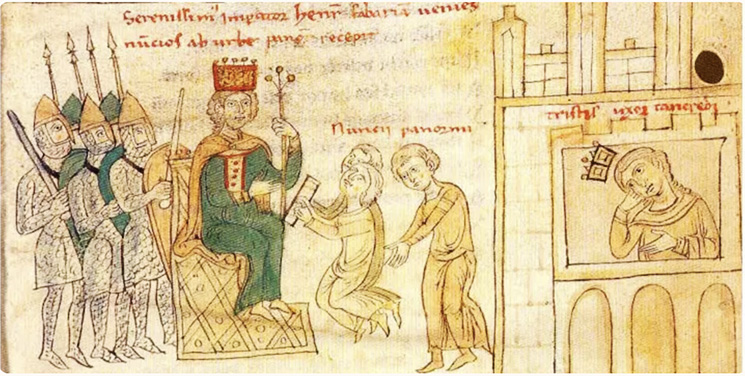 Serenissim' impator henr' fabaria venies
nūcios ab urbe pang recepit
Nuncii panormi
tristis uxor tancredi